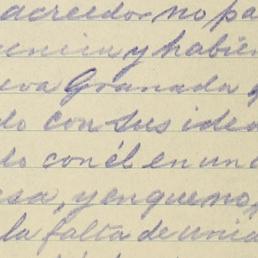 acreedor no pa
encia y habien
eva Granada
do con sus idea
do con él en un
esa, y en que no
la falta de unid